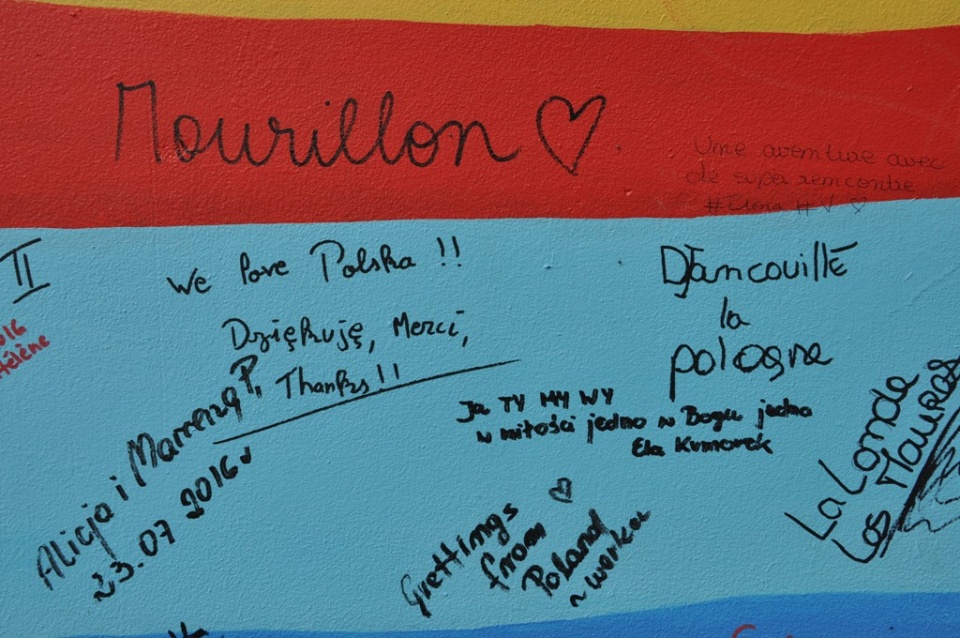 Mourillon
Une aventure avec
de super rencontre
II
We love Polska !!
Dziękuję, Merci,
Thanks!!
DJANCOUILLE
la
pologne
2016
Hélène
Ja TY MY WY
w miłości jedno w Bogu jedno
Ela Kumorek
Alicja i Marrena P.
23.07 2016
Grettings
from
Poland
La Londe
Les Maures